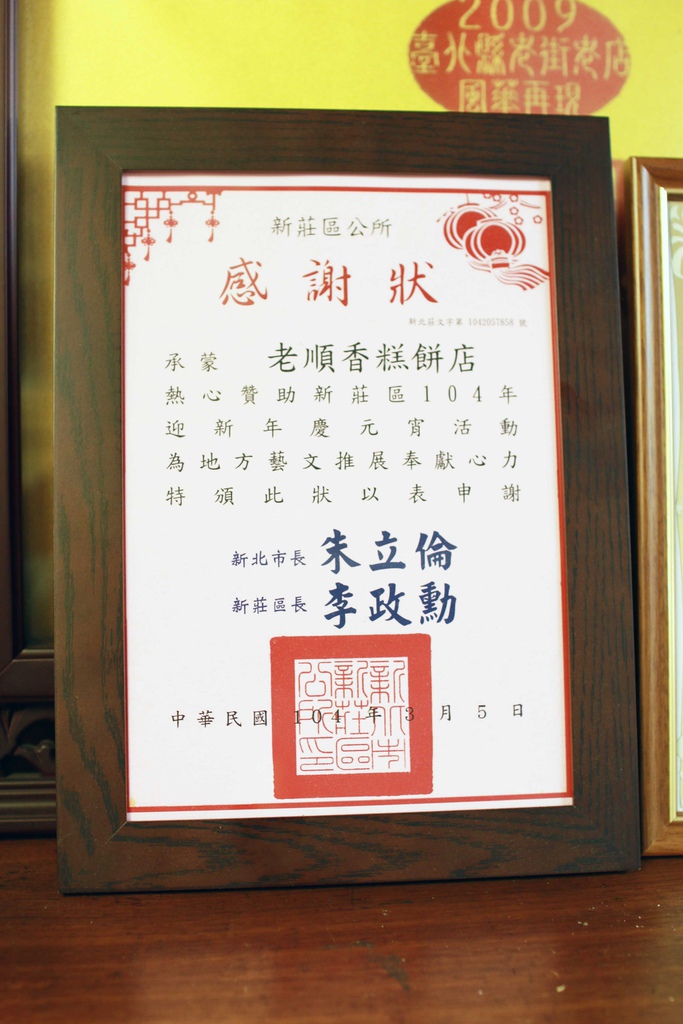 2009
臺北縣老街老店
風華再現
新莊區公所
感謝狀
新北莊文字第 1042057858 號
承蒙 老順香糕餅店
熱心贊助新莊區104年
迎新年慶元宵活動
為地方藝文推展奉獻心力
特頒此狀以表申謝
新北市長 朱立倫
新莊區長 李政勳
中華民國 104 年 3 月 5 日
新北市新莊區公所印